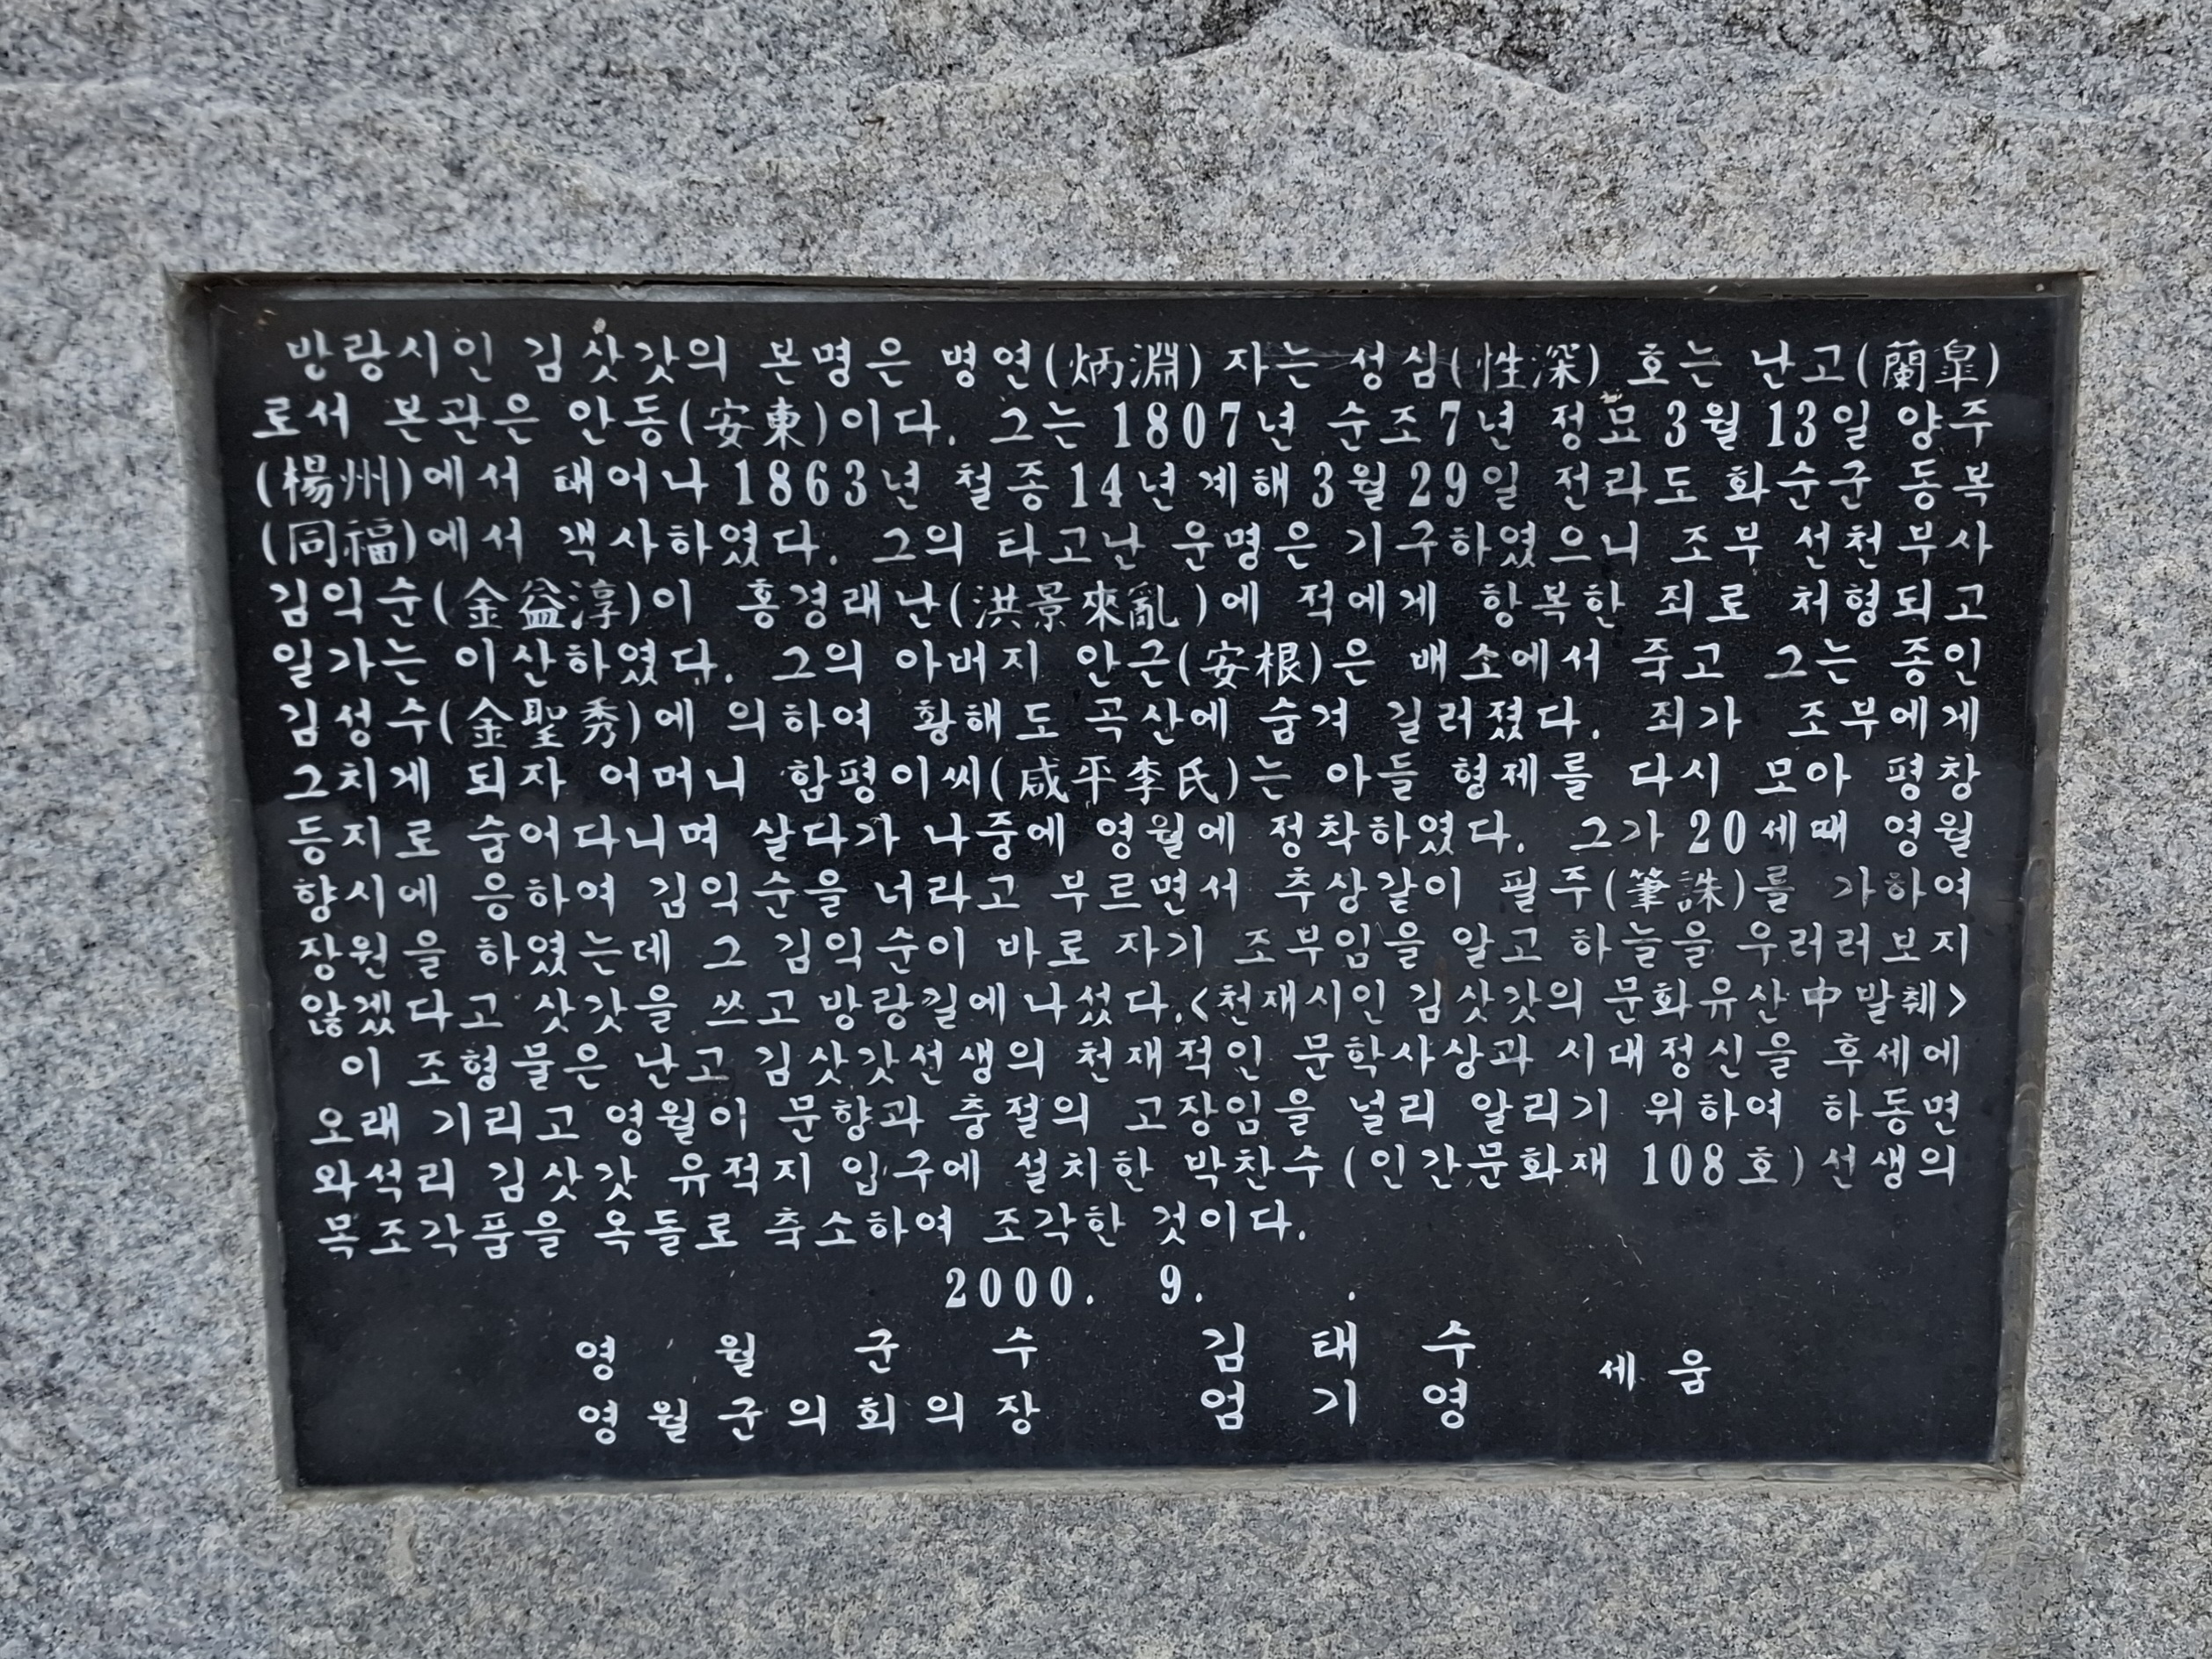 방랑시인 김삿갓의 본명은 병연(炳淵) 자는 성심(性深) 호는 난고(蘭皐)
로서 본관은 안동(安東)이다. 그는 1807년 순조7년 정묘3월 13일 양주
(楊州)에서 태어나 1863년 철종14년계해3월29일 전라도 화순군 동복
(同福)에서 객사하였다. 그의 타고난 운명은 기구하였으니 조부 선천부사
김익순(金益淳)이 홍경래난(洪景來亂)에 적에게 항복한 죄로 처형되고
일가는 이산하였다. 그의 아버지 안근(安根)은 배소에서 죽고 그는 종인
김성수(金聖秀)에 의하여 황해도 곡산에 숨겨 길러졌다. 죄가 조부에게
그치게 되자 어머니 함평이씨(咸平李氏)는 아들 형제를 다시 모아 평창
등지로 숨어다니며 살다가 나중에 영월에 정착하였다. 그가 20세때 영월
향시에 응하여 김익순을 너라고 부르면서 추상같이 필주(筆誅)를 가하여
장원을 하였는데 그 김익순이 바로 자기 조부임을 알고 하늘을 우러러보지
않겠다고 삿갓을 쓰고 방랑길에나섰다.<천재시인 김삿갓의 문화유산中발췌>
이 조형물은 난고 김삿갓선생의 천재적인 문학사상과 시대정신을 후세에
오래 기리고 영월이 문향과 충절의 고장임을 널리 알리기 위하여 하동면
와석리 김삿갓 유적지 입구에 설치한 박찬수(인간문화재 108호)선생의
목조각품을 옥돌로 축소하여 조각한 것이다.
2000. 9. .
영 월 군 수 김 태 수
영월군의회의장 엄 기 영 세 움